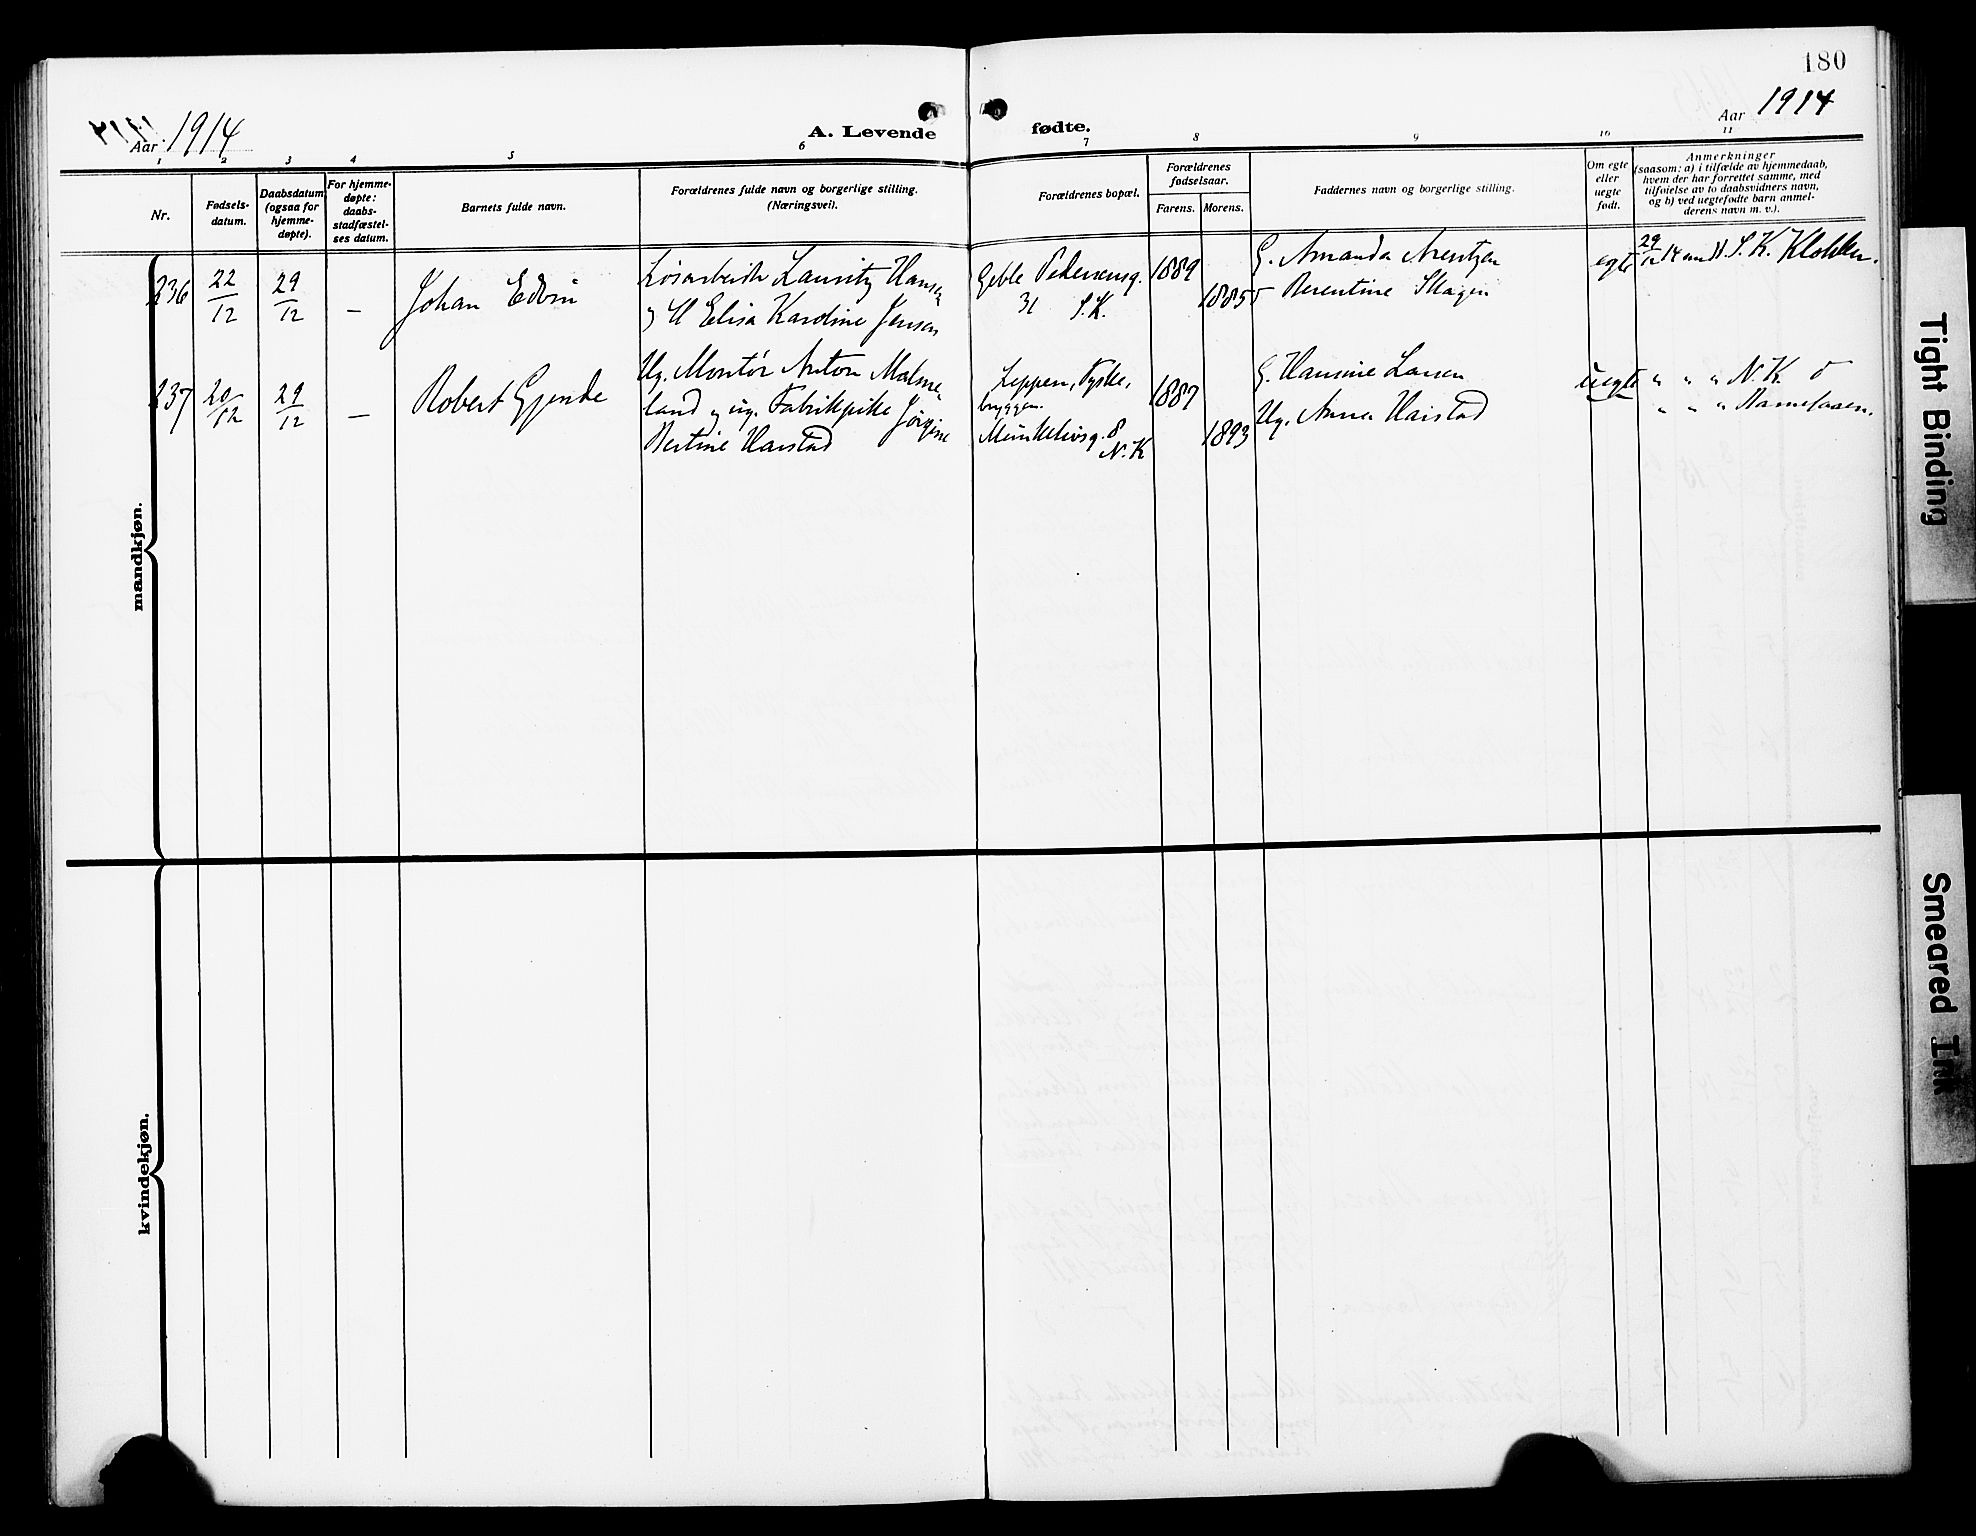 180
Aar 1914
A. Levende fødte.
Aar 1914
1 2 3 4 5 6 7 8 9 10 11
Nr.
Fødsels-
datum.
Daabsdatum
(ogsaa for
hjemme-
døpte).
For hjemme-
døpte:
daabs-
stadfæstel-
ses datum.
Barnets fulde navn.
Forældrenes fulde navn og borgerlige stilling.
(Næringsvei).
Forældrenes bopæl.
Forældrenes
fødselsaar.
Farens. Morens.
Faddernes navn og borgerlige stilling.
Om egte
eller
uegte
født.
Anmerkninger
(saasom: a) i tilfælde av hjemmedaab,
hvem der har forrettet samme, med
tilføielse av to daabsvidners navn,
og b) ved uegtefødte barn anmel-
derens navn m. v.).
mandkjøn.
236
22/12
29/12
–
Johan Edvin
Løsarbeider Lauritz Hansen
og H Elisa Karoline Jensen
Geble Pedersensg.
31 S.K.
1889
1885
G. Amanda Arentzen
Berentine Skagen
egte
29/12 14 S. K. Klokken.
237
20/12
29/12
–
Robert Gjende
Ug. Montør Anton Malme-
land og ug. Fabrikpike Jørgine
Bertine Harstad
Leppen, Tyske-
bryggen.
Munkelivsg. 8
N. K
1887
1893
G. Hansine Larsen
Ug. Anna Harstad
uegte
" " " N. K.
" " "
kvindekjøn.
Tight Binding
Smeared Ink